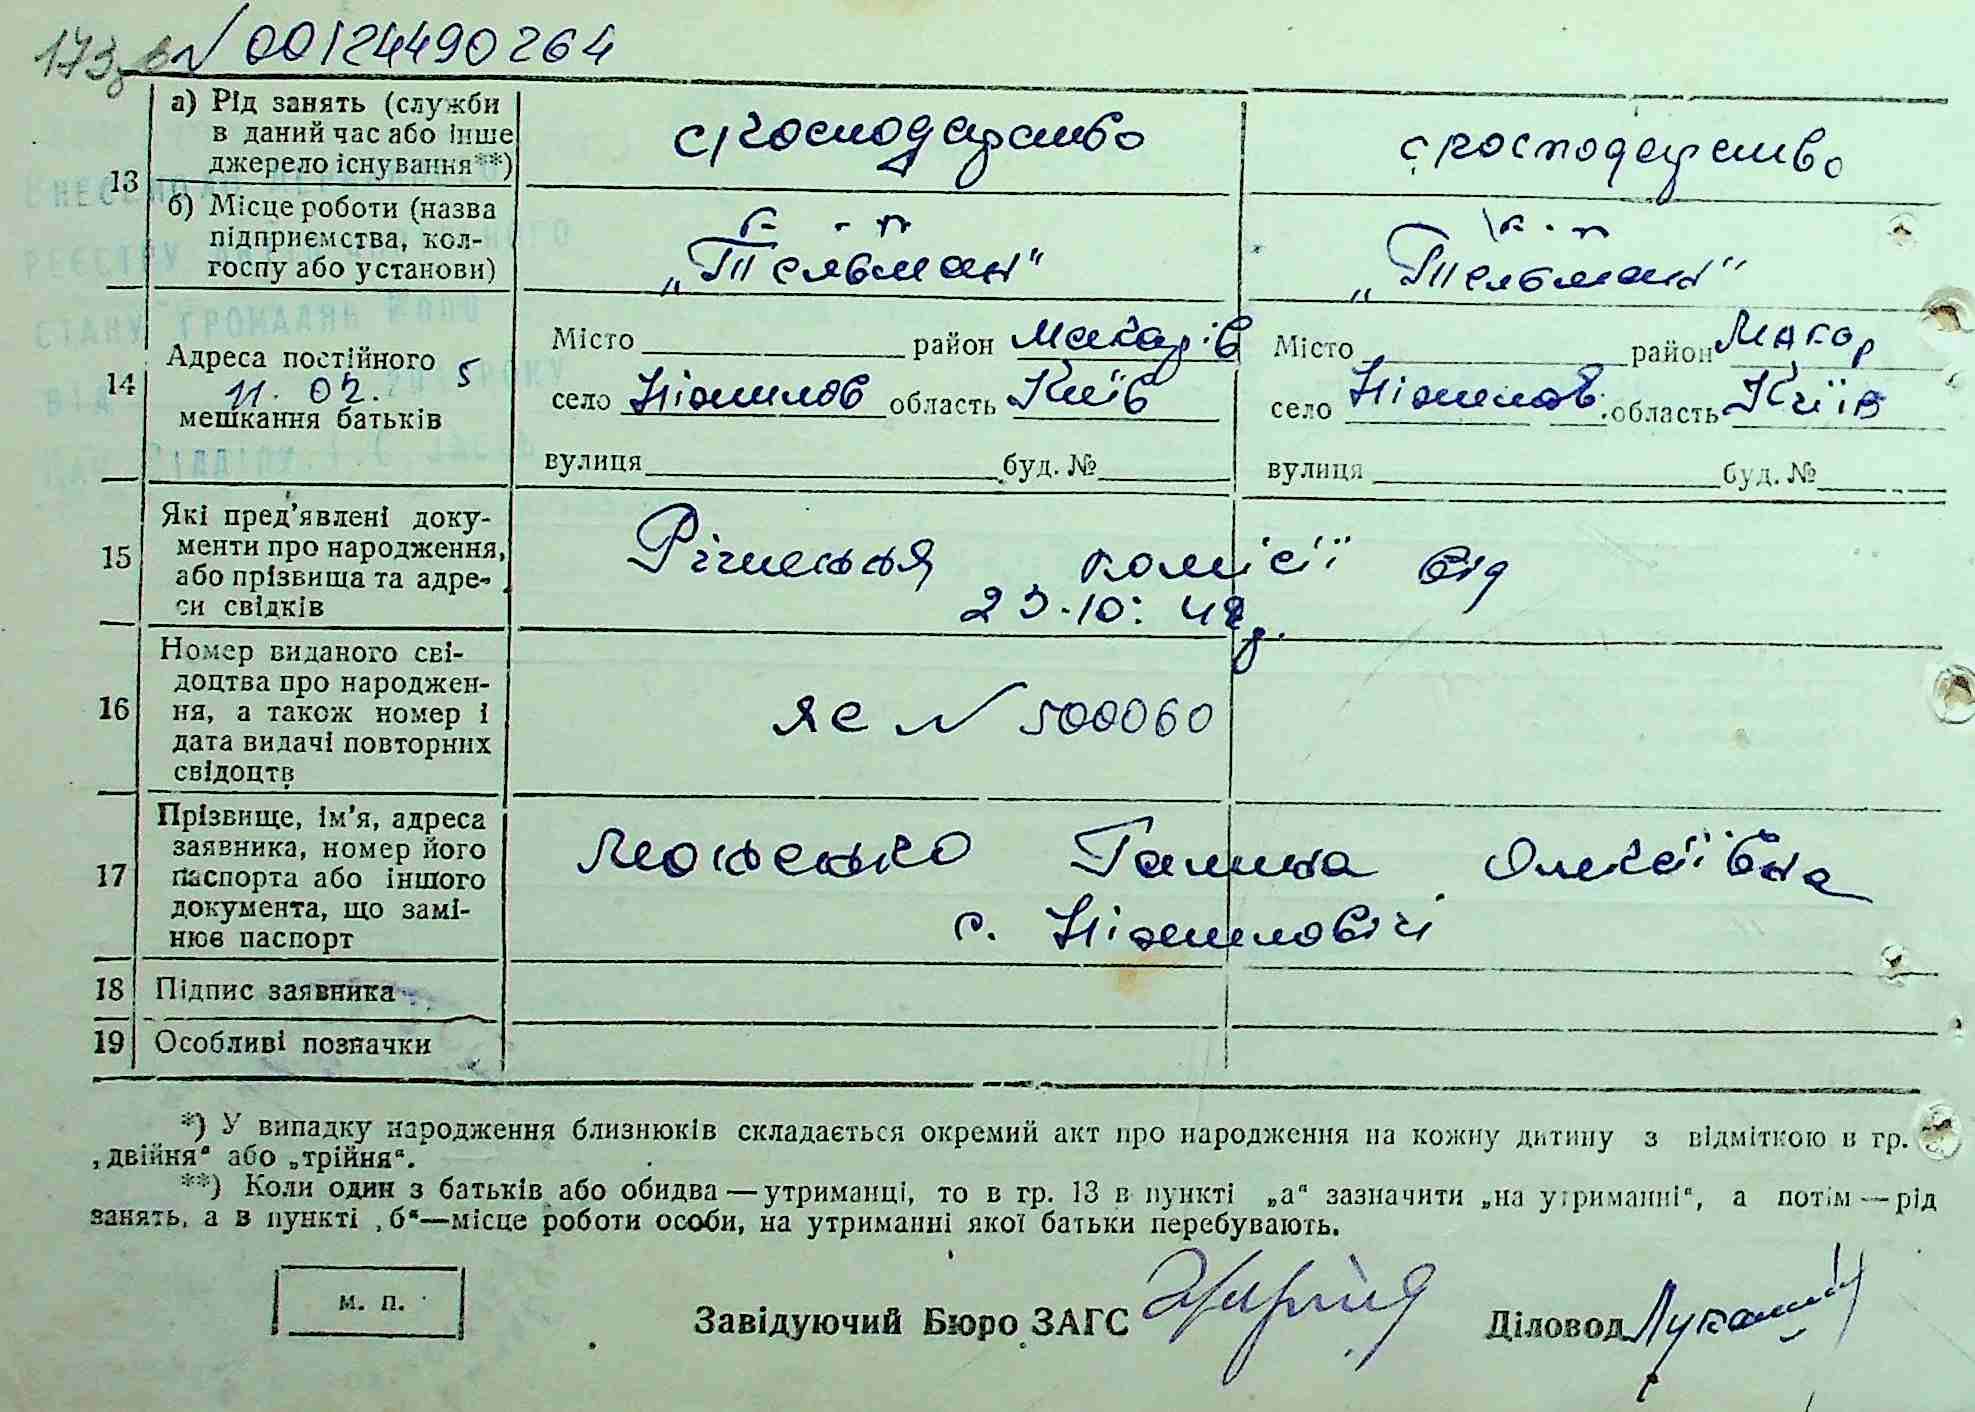 № 00124490264
13
а) Рід занять (служби в даний час або інше джерело існування**)
с/господарство
с/господарство
б) Місце роботи (назва підприємства, колгоспу або установи)
к-п
„Тельман"
к-п
„Тельман"
14
Адреса постійного
11. 02. 5
мешкання батьків
Місто район Макарів
село Ніжилов область Київ
вулиця буд. №
Місто район Макар
село Ніжилов. область Київ
вулиця буд. №
15
Які пред'явлені документи про народження, або прізвища та адреси свідків
Рішення комісії від
23.10. 48 р.
16
Номер виданого свідоцтва про народження, а також номер і дата видачі повторних свідоцтв
ЯЄ № 500060
17
Прізвище, ім'я, адреса заявника, номер його паспорта або іншого документа, що замінює паспорт
Галина Олексіївна
с. Ніжиловичі
18
Підпис заявника
19
Особливі позначки
*) У випадку народження близнюків складається окремий акт про народження на кожну дитину з відміткою в гр.
„двійня" або „трійня".
**) Коли один з батьків або обидва — утриманці, то в гр. 13 в пункті „а" зазначити „на утриманні", а потім — рід
занять, а в пункті „б"—місце роботи особи, на утриманні якої батьки перебувають.
м. п.
Завідуючий Бюро ЗАГС
Діловод